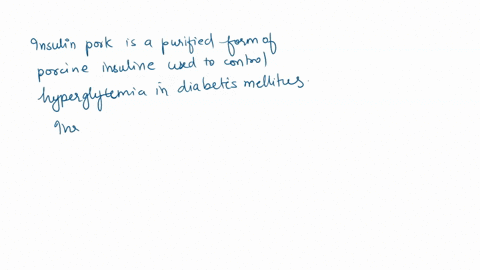 Insulin pork is a purified form of
porcine insuline used to control
hyperglytemia in diabetis mellitus.